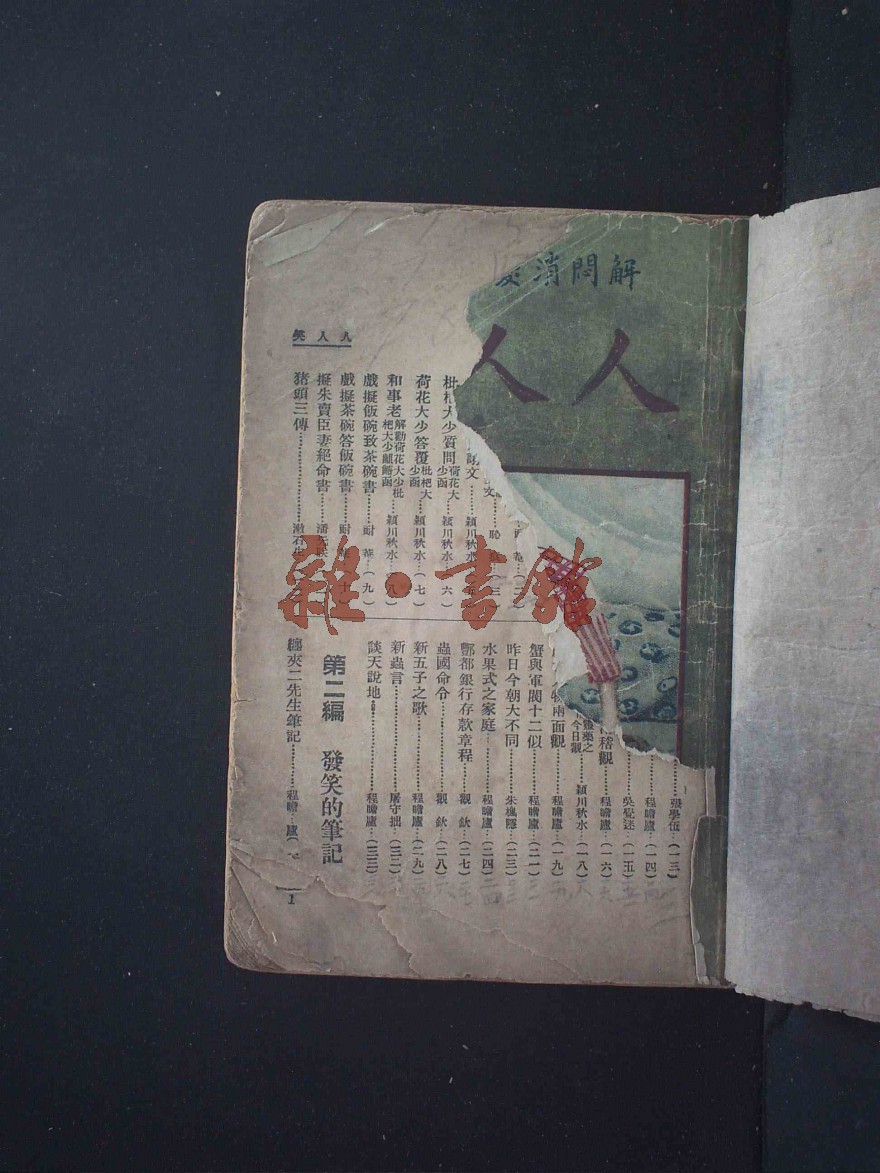 解悶消
人人
人人笑
文
枇杷大少質問荷花大少函……潁川秋水(六)
荷花大少答覆枇杷大少函……潁川秋水(七)
和事老解勸荷花大少枇杷大少齟齬函……潁川秋水(八)
戲擬飯碗致茶碗書……耐菴(九)
戲擬茶碗答飯碗書……耐
擬朱賣臣妻絕命書……
猪頭三傳……漱石生
張學伍…(一三)
程瞻廬…(一四)
吳覺迷…(一五)
稽觀……程瞻廬…(一六)
今日觀……潁川秋水…(一八)
兩面觀……程瞻廬…(一九)
蟹與軍閥十二似……程瞻廬…(二一)
昨日今朝大不同……朱楓隱…(二三)
水果式之家庭……程瞻廬…(二四)
酆都銀行存款章程……觀欽…(二七)
蟲國命令……觀欽…(二八)
新五子之歌……程瞻廬…(二九)
新蟲言……屠守拙…(三二)
談天說地……程瞻廬…(三三)
第二編 發笑的筆記
纏夾二先生筆記……程瞻廬
1
雜·書館